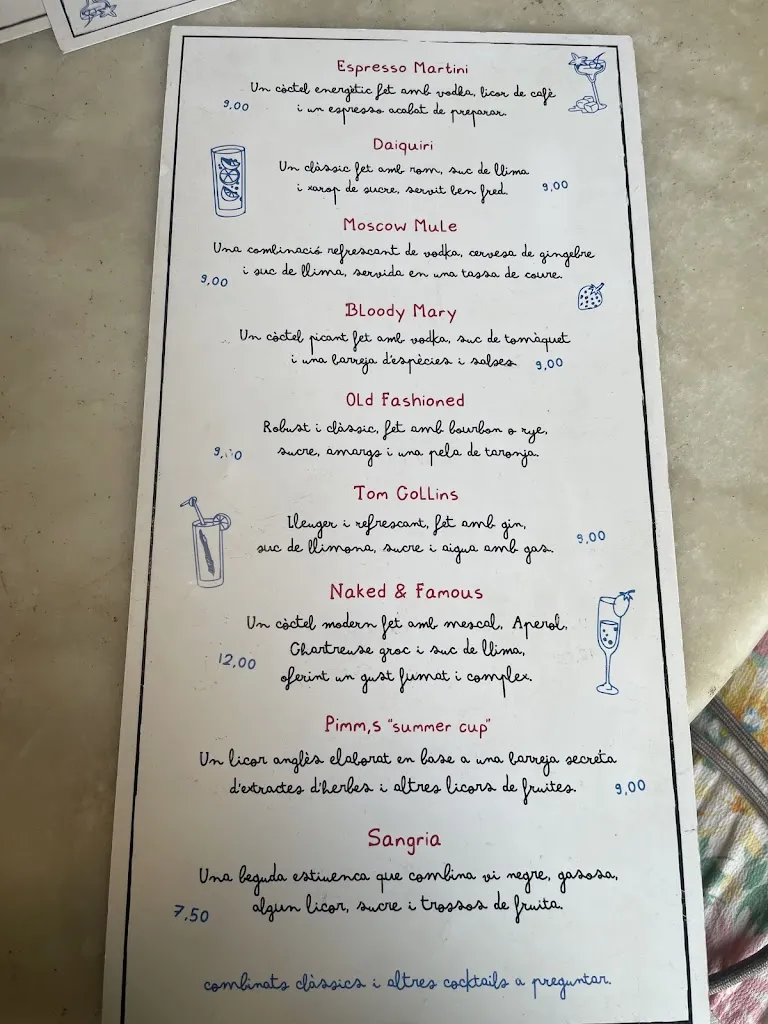 Espresso Martini
Un còctel energètic fet amb vodka, licor de cafè
9,00 i un espresso acabat de preparar.
Daiquiri
Un clàssic fet amb rom, suc de llima
i xarop de sucre, servit ben fred. 9,00
Moscow Mule
Una combinació refrescant de vodka, cervesa de gingebre
9,00 i suc de llima, servida en una tassa de coure.
Bloody Mary
Un còctel picant fet amb vodka, suc de tomàquet
i una barreja d'espècies i salses 9,00
Old Fashioned
Robust i clàssic, fet amb bourbon o rye,
sucre, amargs i una pela de taronja.
Tom Collins
Lleuger i refrescant, fet amb gin,
suc de llimona, sucre i aigua amb gas. 9,00
Naked & Famous
Un còctel modern fet amb mescal, Aperol,
Chartreuse groc i suc de llima,
12,00 oferint un gust fumat i complex.
Pimm,s "summer cup"
Un licor anglès elaborat en base a una barreja secreta
d'extractes d'herbes i altres licors de fruites. 9,00
Sangria
Una beguda estiuenca que combina vi negre, gasosa,
7,50 algun licor, sucre i trossos de fruita.
combinats clàssics i altres cocktails a preguntar.